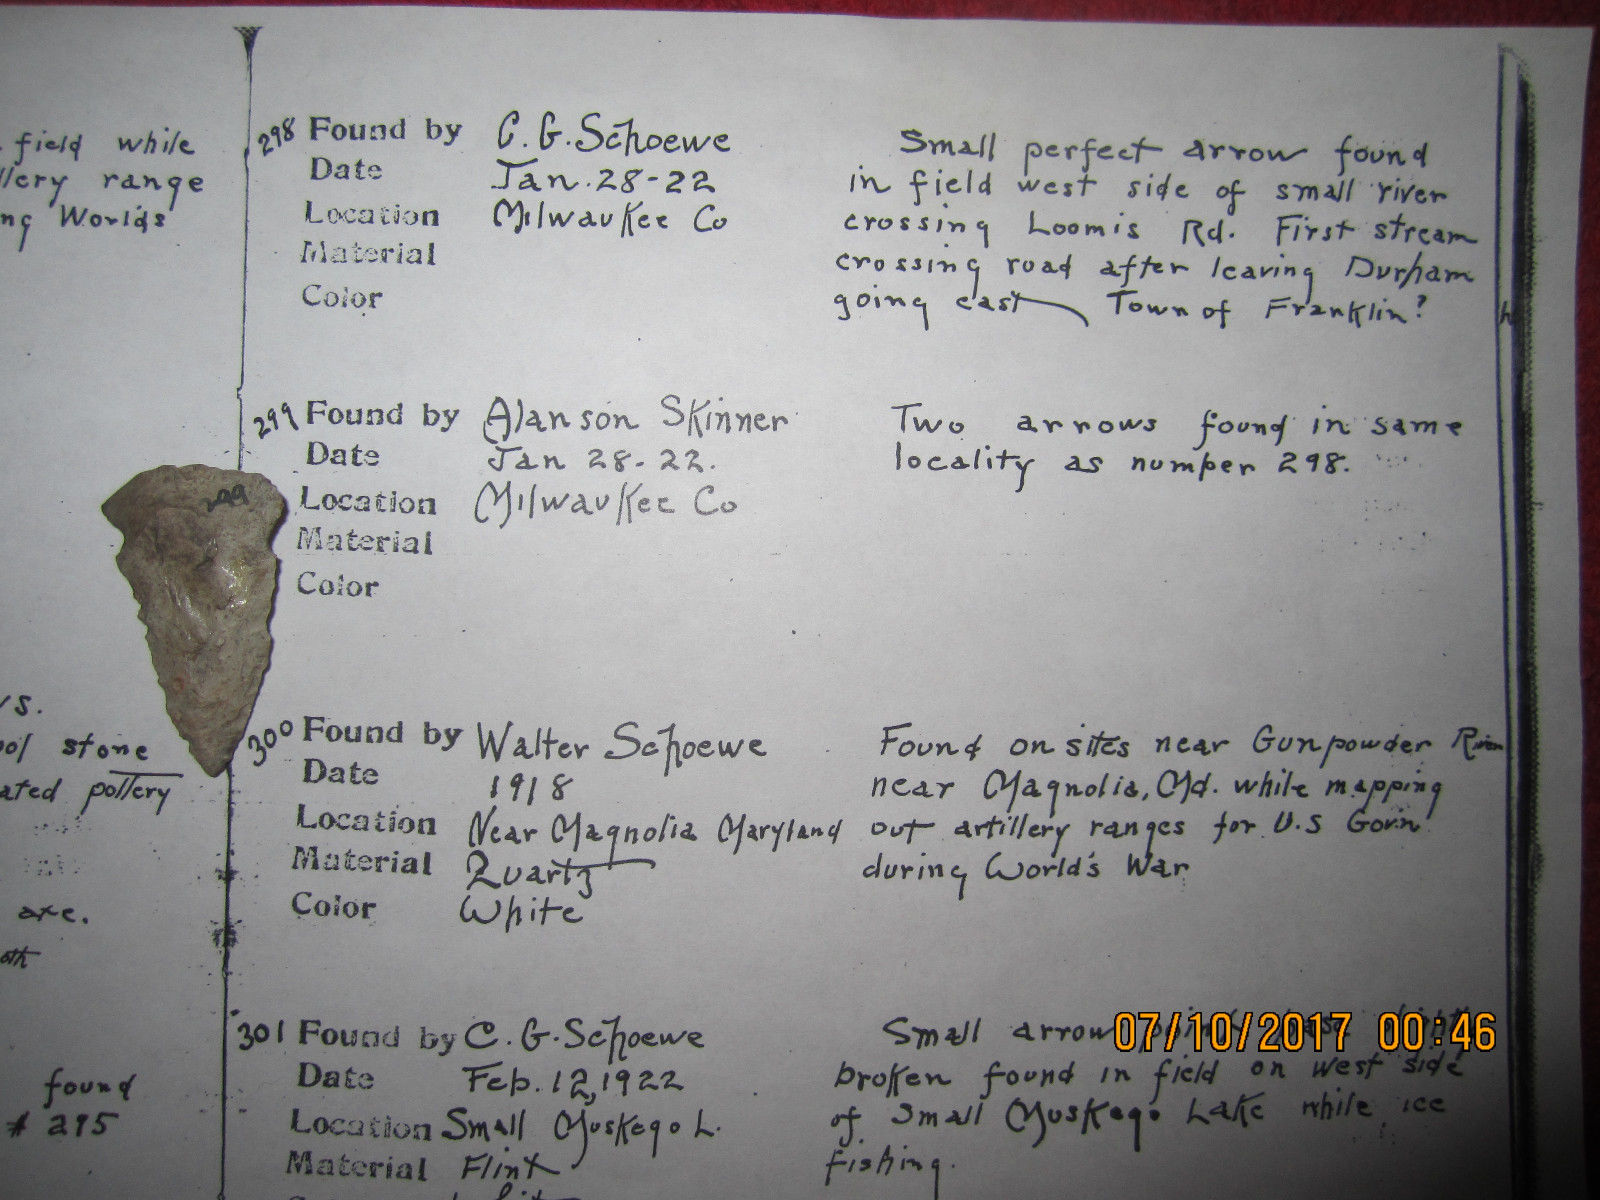 field while
range
Worlds
298 Found by C. G. Schoewe
Date Jan. 28-22
Location Milwaukee Co
Material
Color
Small perfect arrow found
in field west side of small river
crossing Loomis Rd. First stream
crossing road after leaving Durham
going east Town of Franklin?
299 Found by Alanson Skinner
Date Jan 28-22.
Location Milwaukee Co
Material
Color
Two arrows found in same
locality as number 298.
299
stone
pottery
300 Found by Walter Schoewe
Date 1918
Location Near Magnolia Maryland
Material Quartz
Color White
Found on sites near Gunpowder River
near Magnolia, Md. while mapping
out artillery ranges for U.S Gov'n
during World's War
axe.
found
# 295
301 Found by C. G. Schoewe
Date Feb. 12, 1922
Location Small Muskego L.
Material Flint
Small arrow
broken found in field on west side
of Small Muskego Lake while ice
fishing.
07/10/2017 00:46